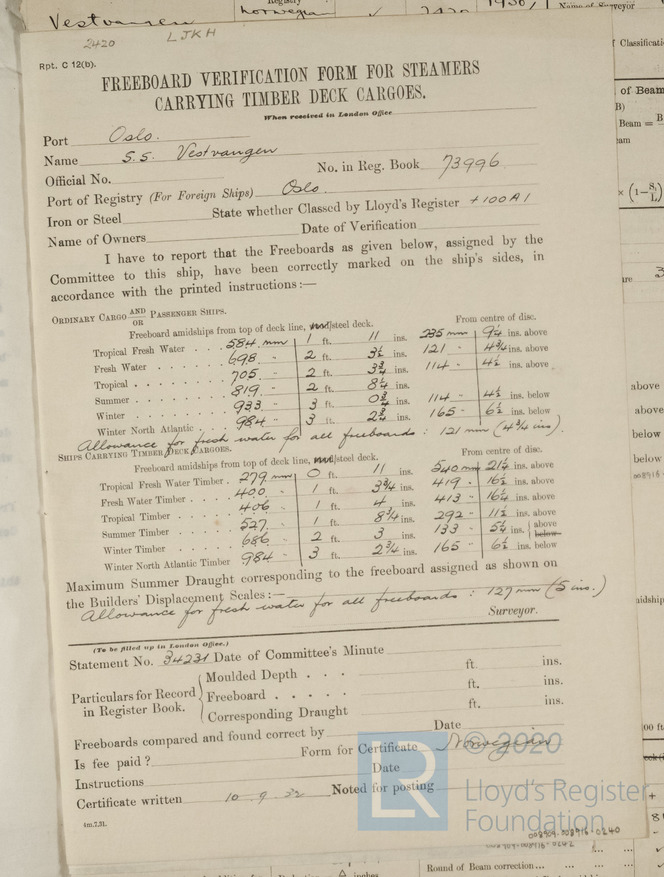 Vestvangen
Registry
Norwegian
2420
Name of Surveyor
2420
LJKH
Rpt. C 12(b).
Classificati
FREEBOARD VERIFICATION FORM FOR STEAMERS
CARRYING TIMBER DECK CARGOES.
of Beam
B)
Beam = B
When received in London Office
Port Oslo.
Name S.S. Vestvangen
Official No. No. in Reg. Book 73996
Port of Registry (For Foreign Ships) Oslo.
Iron or Steel State whether Classed by Lloyd's Register +100A1
Name of Owners Date of Verification
I have to report that the Freeboards as given below, assigned by the
Committee to this ship, have been correctly marked on the ship's sides, in
accordance with the printed instructions:—
ORDINARY CARGO AND/OR PASSENGER SHIPS.
Freeboard amidships from top of deck line, wood/steel deck. From centre of disc.
Tropical Fresh Water . . . 584 mm 1 ft. 11 ins. 235 mm 9¼ ins. above
Fresh Water . . . . . . . 698 " 2 ft. 3½ ins. 121 " 4¾ ins. above
Tropical . . . . . . . . 705 " 2 ft. 3¾ ins. 114 " 4½ ins. above
Summer . . . . . . . . 819 " 2 ft. 8¼ ins.
Winter . . . . . . . . 933 " 3 ft. 0¾ ins. 114 " 4½ ins. below
Winter North Atlantic . . 984 " 3 ft. 2¾ ins. 165 " 6½ ins. below
Allowance for fresh water for all freeboards : 121 mm (4¾ ins).
SHIPS CARRYING TIMBER DECK CARGOES.
Freeboard amidships from top of deck line, wood/steel deck. From centre of disc.
Tropical Fresh Water Timber . 279 mm 0 ft. 11 ins. 540 mm 21¼ ins. above
Fresh Water Timber . . . . 400 " 1 ft. 3¾ ins. 419 " 16½ ins. above
Tropical Timber . . . . . 406 " 1 ft. 4 ins. 413 " 16¼ ins. above
Summer Timber . . . . . 527 " 1 ft. 8¾ ins. 292 " 11½ ins. above
Winter Timber . . . . . 686 " 2 ft. 3 ins. 133 " 5¼ ins. above below
Winter North Atlantic Timber 984 " 3 ft. 2¾ ins. 165 " 6½ ins. below
Maximum Summer Draught corresponding to the freeboard assigned as shown on
the Builders' Displacement Scales:—
Allowance for fresh water for all freeboards : 127 mm (5 ins.)
Surveyor.
(To be filled up in London Office.)
Statement No. 34231 Date of Committee's Minute
Particulars for Record in Register Book.
Moulded Depth . . . ft. ins.
Freeboard . . . . . ft. ins.
Corresponding Draught ft. ins.
Freeboards compared and found correct by Date
Is fee paid ? Form for Certificate Norwegian
Instructions Date
Certificate written 10.9.32 Noted for posting
4m.7.31.
© 2020
Lloyd's Register
Foundation
008909-008916-0240
above
above
below
below
Round of Beam correction...
inches